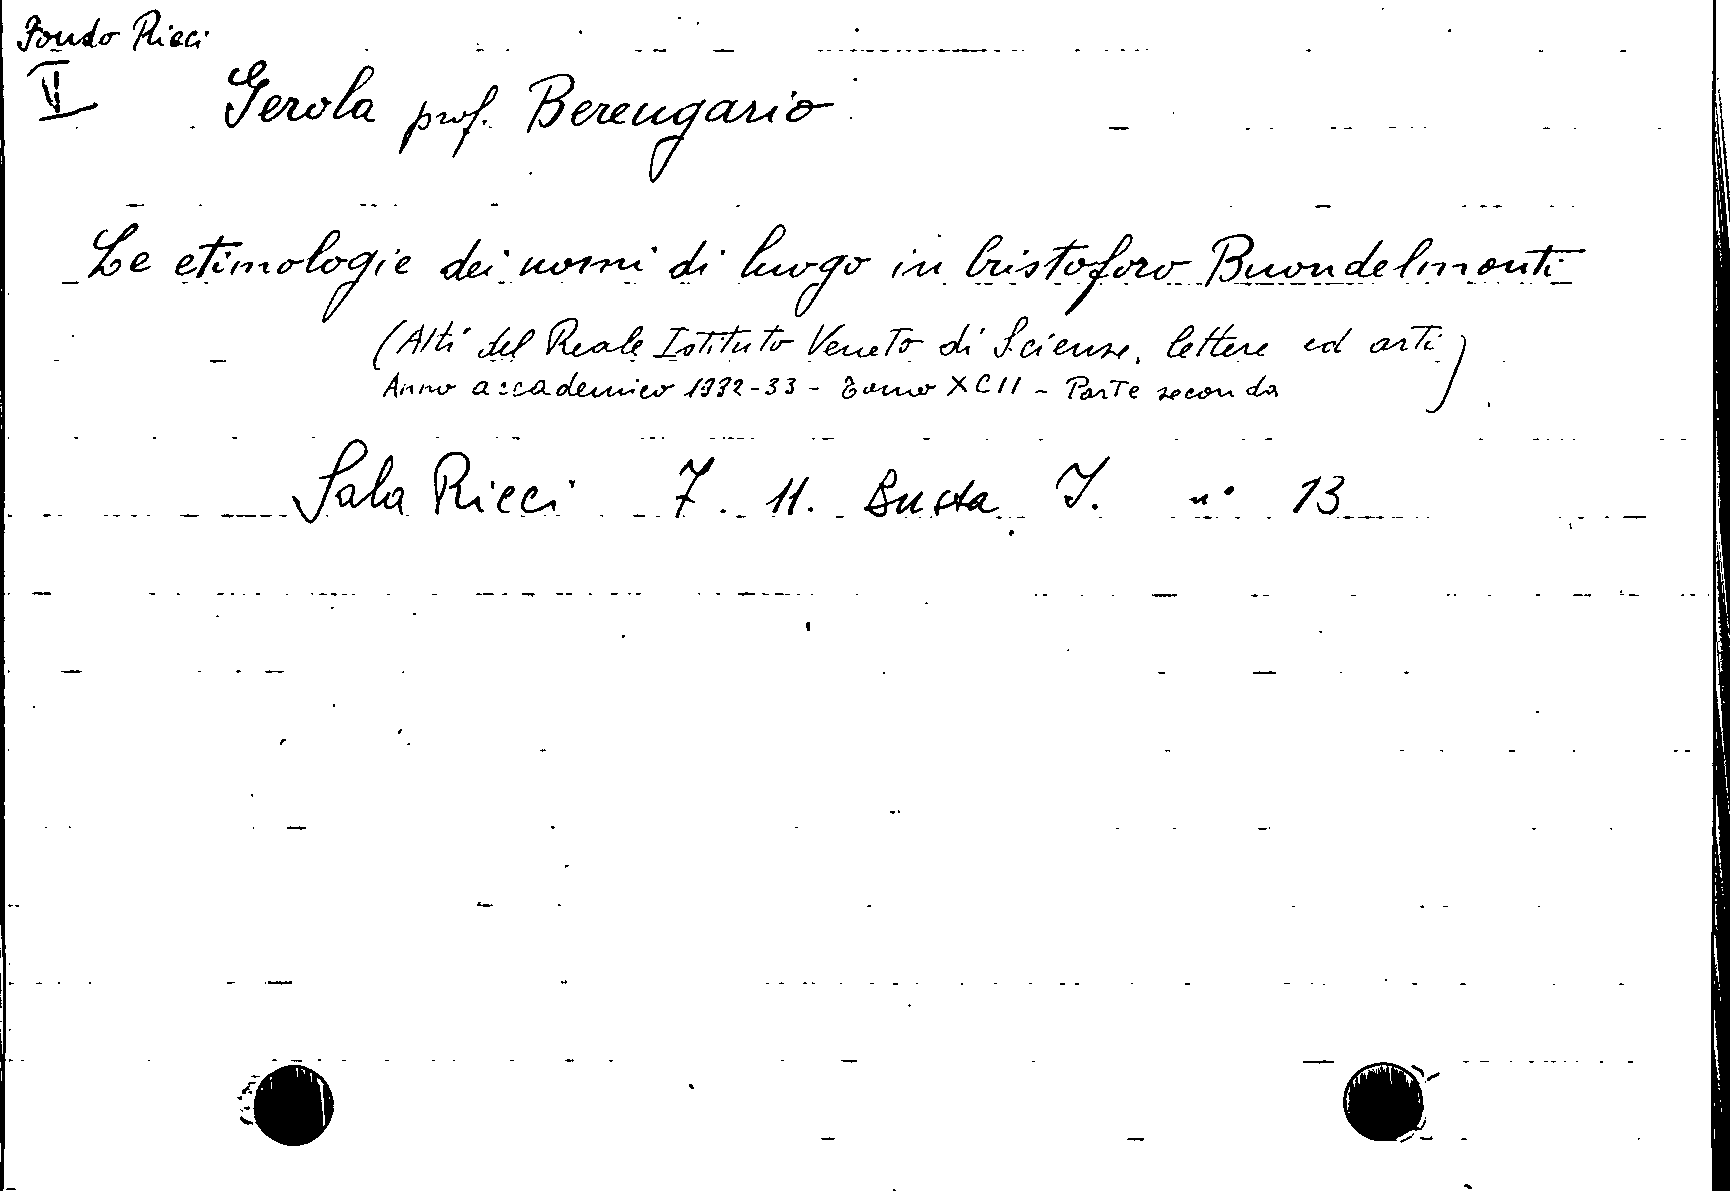 Fondo Ricci
V
Gerola prof. Berengario
Le etimologie dei nomi di luogo in Cristoforo Buondelmonti
(Atti del Reale Istituto Veneto di Scienze, lettere ed arti
Anno accademico 1932-33 - Tomo XCII - Parte seconda)
Sala Ricci 7. 11. Busta I. n° 13